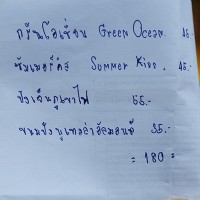 กรีนโอเชี่ยน Green Ocean. 45.-
ซัมเมอร์คิส Summer Kiss. 45.-
ปังเย็นภูเขาไฟ 55.-
ขนมปังนูเทลล่าอัลมอนด์ 35.-
= 180 =